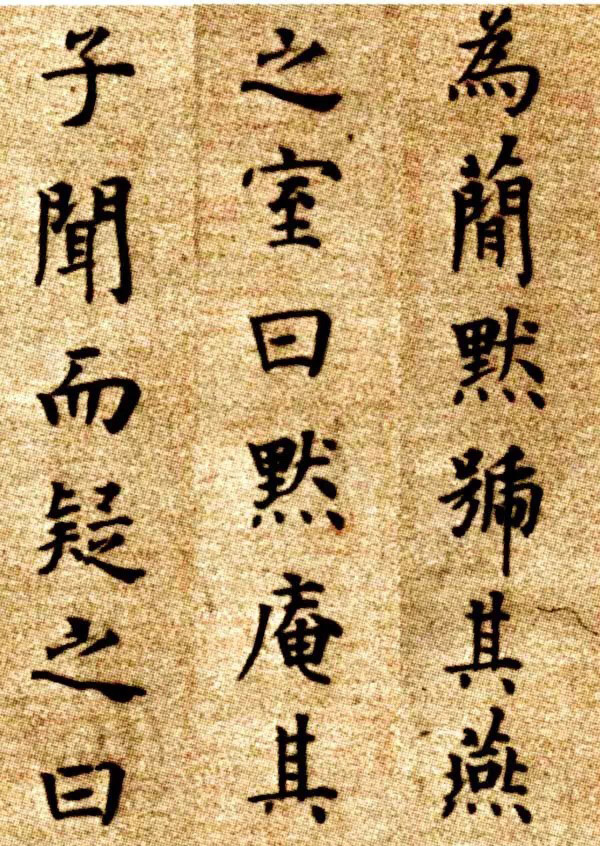 為蕳默號其燕
之室曰默庵其
子聞而疑之曰